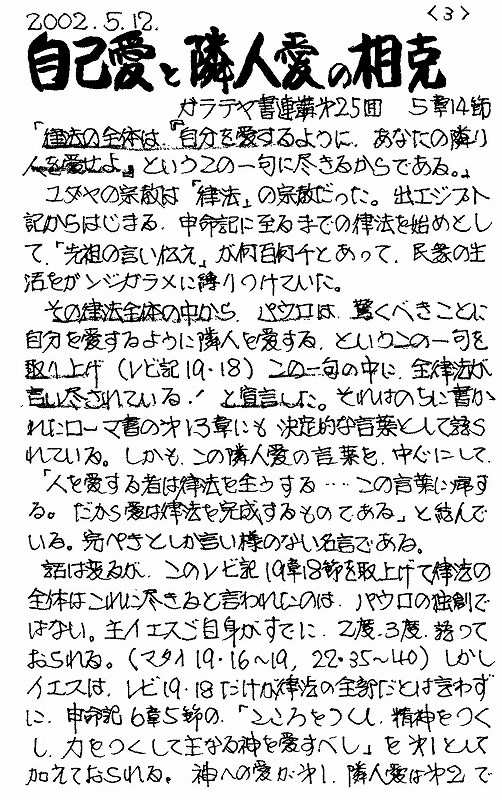 2002.5.12.　〈3〉
自己愛と隣人愛の相克
ガラテヤ書連講才25回　5章14節
「律法の全体は『自分を愛するように、あなたの隣り
人を愛せよ』というこの一句に尽きるからである。」
ユダヤの宗教は「律法」の宗教だった。出エジプト
記からはじまる、申命記に至るまでの律法を始めとし
て、「先祖の言い伝え」が何百何千とあって、民衆の生
活をガンジガラメに縛りつけていた。
その律法全体の中から、パウロは、驚くべきことに
自分を愛するように隣人を愛する、というこの一句を
取り上げ（レビ記19・18）この一句の中に、全律法が
言い尽されている！と宣言した。それはのちに書か
れたローマ書の才13章にも決定的な言葉として語ら
れている。しかも、この隣人愛の言葉を、中心にして、
「人を愛する者は律法を全うする…この言葉に帰す
る。だから愛は律法を完成するものである」と結んで
いる。完ぺきとしか言い様のない名言である。
話は変るが、このレビ記19章18節を取上げて律法の
全体はこれに尽きると言われたのは、パウロの独創で
はない。主イエスご自身がすでに、2度、3度、語って
おられる。（マタイ19・16〜19，22・35〜40）しかし
イエスは、レビ19・18だけが律法の全部だとは言わず
に、申命記6章5節の、「こころをつくし、精神をつく
し、力をつくして主なる神を愛すべし」を才1として
加えておられる。神への愛が才1、隣人愛は才2で